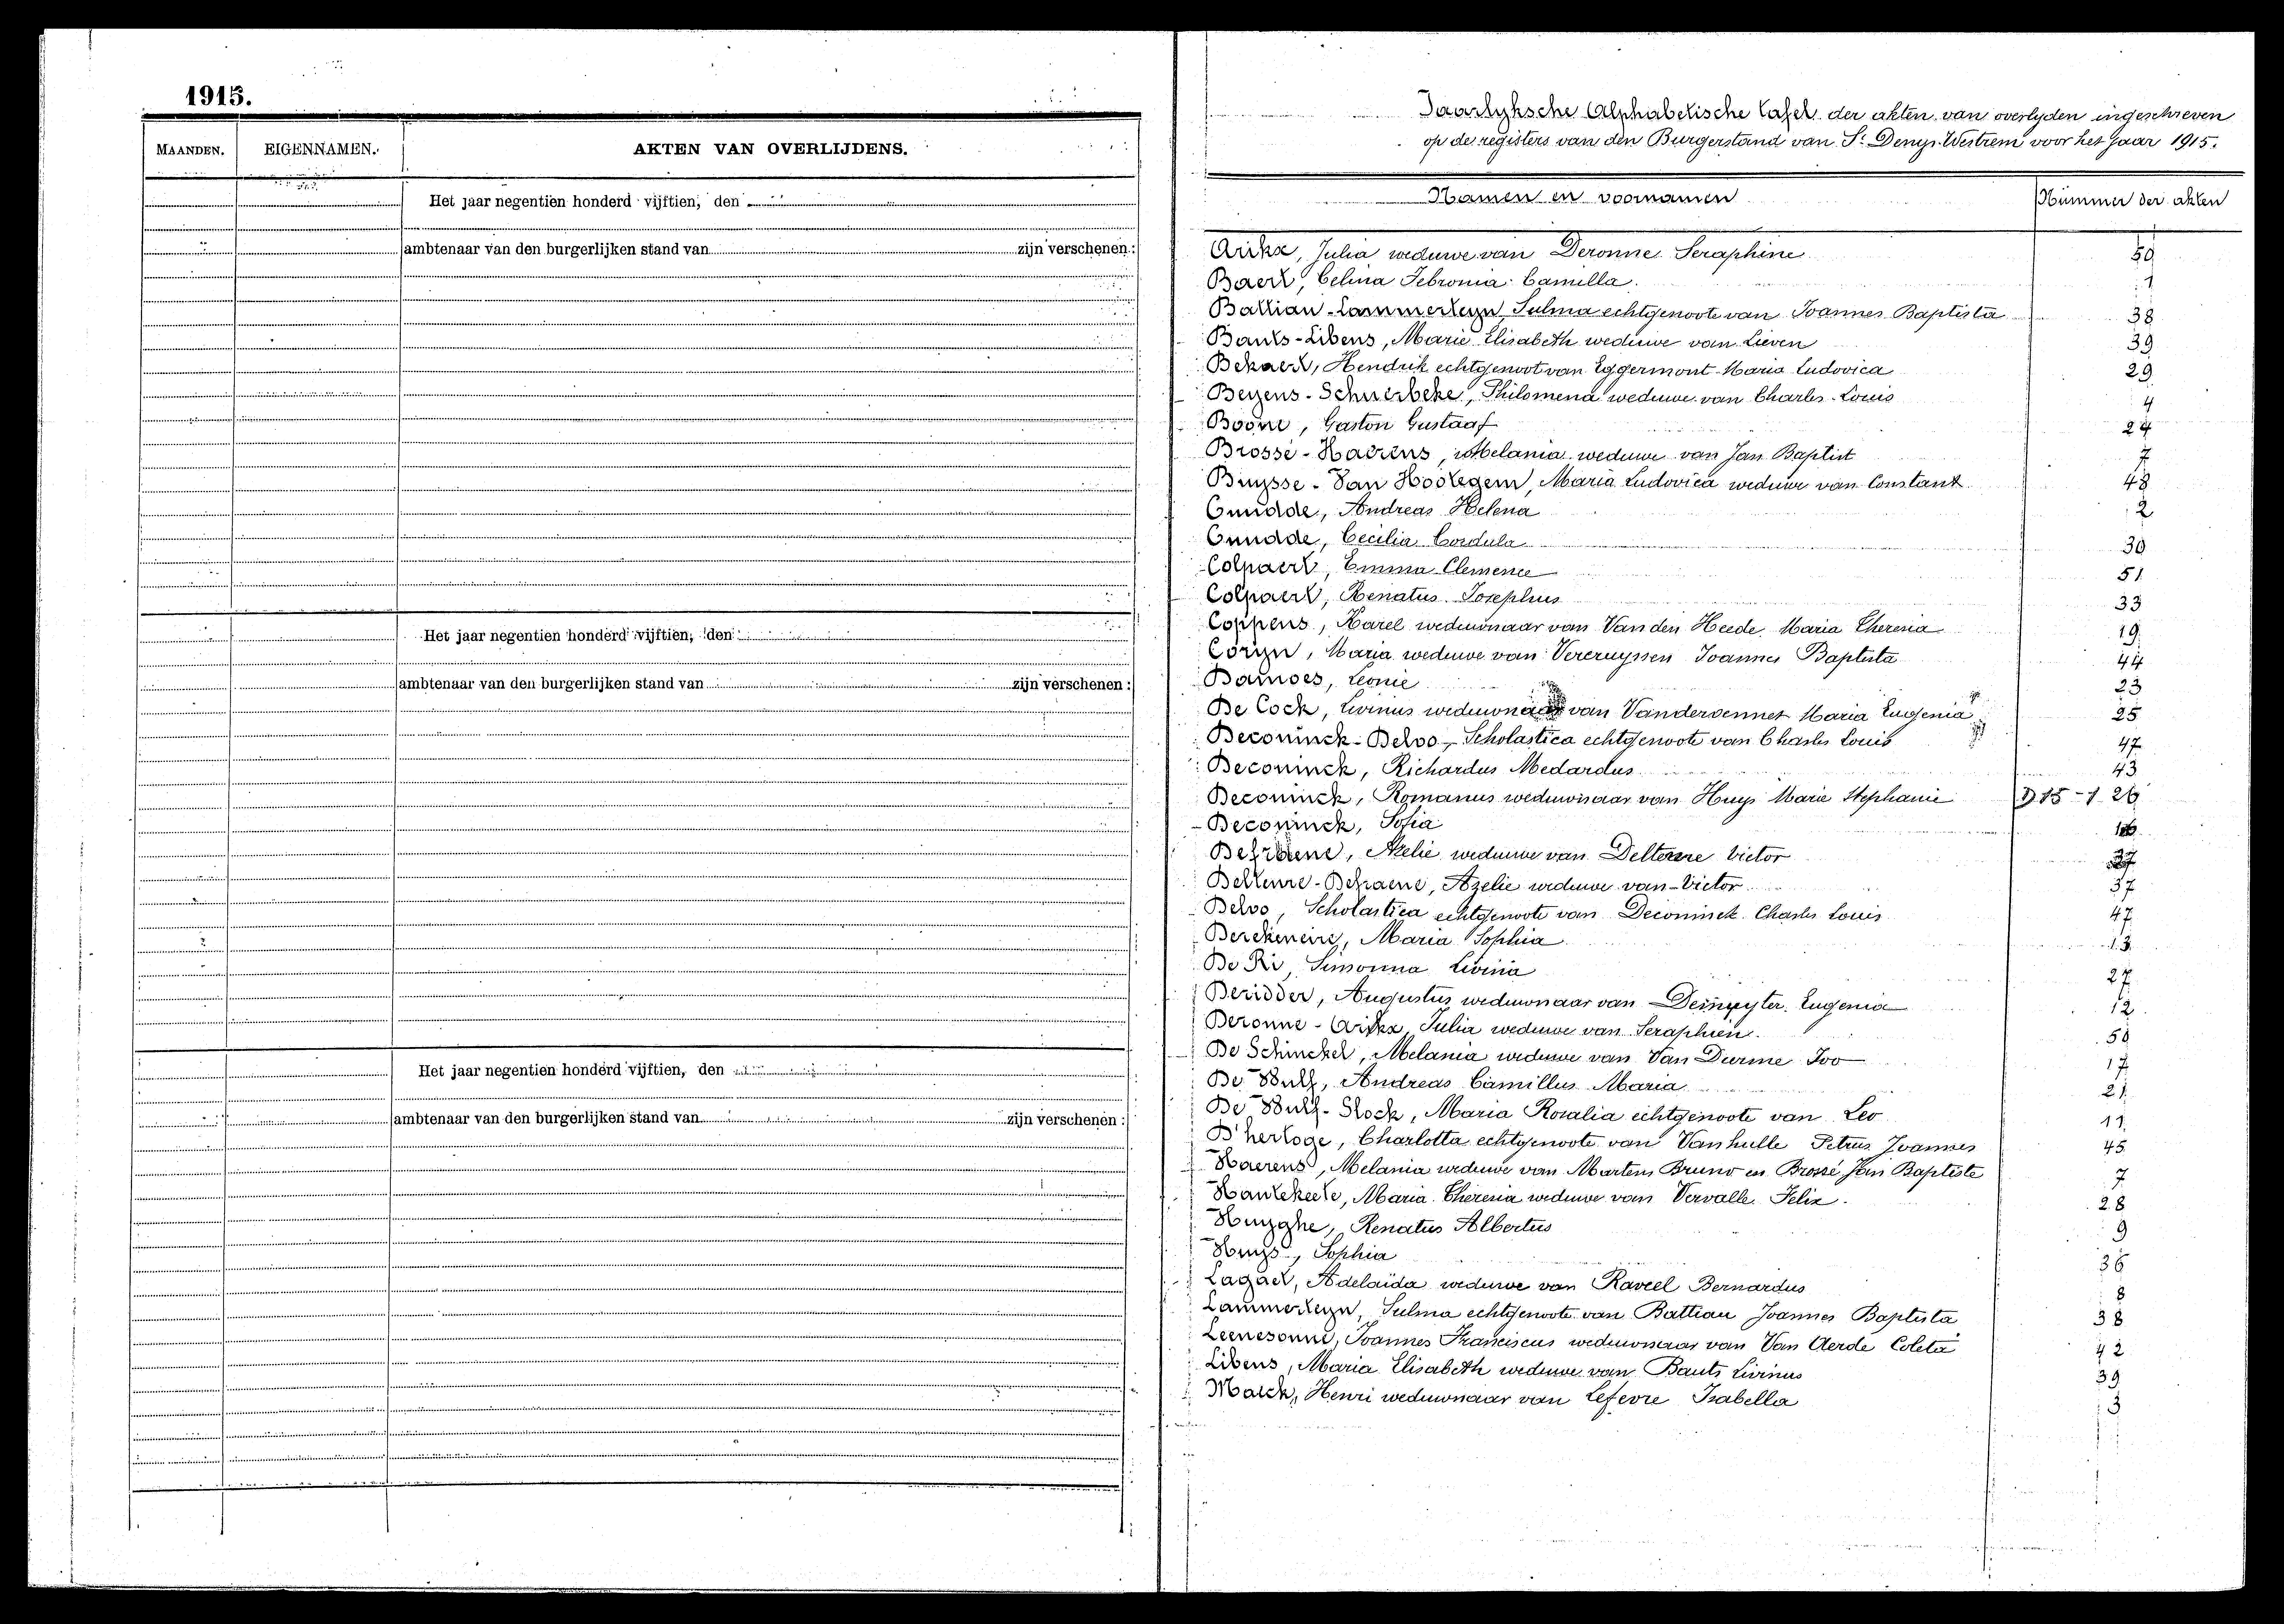 1915.
MAANDEN. EIGENNAMEN. AKTEN VAN OVERLIJDENS.
Het jaar negentien honderd vijftien, den
ambtenaar van den burgerlijken stand van zijn verschenen :
Het jaar negentien honderd vijftien, den
ambtenaar van den burgerlijken stand van zijn verschenen :
Het jaar negentien honderd vijftien, den
ambtenaar van den burgerlijken stand van zijn verschenen :
Jaarlyksche Alphabetische tafel der akten van overlyden ingeschreven
op de registers van den Burgerstand van St Denys-Westrem voor het jaar 1915.
Namen en voornamen Nummer der akten
Julia weduwe van Deronne Seraphine 50
Baert, Celina Febronia Camilla. 1
Battiau-Lammerteyn, Sulma echtgenoote van Joannes Baptista 38
Bauts-Libens, Marie Elisabeth weduwe van Lieven 39
Bekaert, Hendrik echtgenoot van Eggermont Maria Ludovica 29
Beyens-Schnerbeke, Philomena weduwe van Charles-Louis 4
Boone, Gaston Gustaaf 24
Brossé-Haerens, Melania weduwe van Jan Baptist 7
Buysse-Van Hootegem, Maria Ludovica weduwe van Constant 48
Cnudde, Andreas Helena 2
Cnudde, Cecilia Cordula 30
Colpaert, Emma Clemence 51
Colpaert, Renatus Josephus 33
Coppens, Karel weduwnaar van Van den Heede Maria Theresia 19
Coryn, Maria weduwe van Vercruyssen Joannes Baptista 44
Damoes, Leonie 23
De Cock, Livinus weduwnaar van Vandervennet Maria Eugenia 25
Deconinck-Delvo, Scholastica echtgenoote van Charles Louis 47
Deconinck, Richardus Medardus 43
Deconinck, Romanus weduwnaar van Huys Marie Stephanie D 15-1 26
Deconinck, Sofia
Defraene, Azelie weduwe van Deltenre Victor 37
Deltenre-Defraene, Azelie weduwe van Victor 37
Delvo, Scholastica echtgenoote van Deconinck Charles Louis 47
Derckeneire, Maria Sophia 13
De Ri, Simonna Livina 27
Deridder, Augustus weduwnaar van Demeyter Eugenia 12
Deronne- Julia weduwe van Seraphien. 50
De Schinckel, Melania weduwe van Van Durme Ivo 17
De Wulf, Andreas Camillus Maria 21
De Wulf-Slock, Maria Rosalia echtgenoote van Leo 11
D'hertoge, Charlotta echtgenoote van Vanhulle Petrus Joannes 45
Haerens, Melania weduwe van Martens Bruno en Brossé Jan Baptiste 7
Hantekeete, Maria Theresia weduwe van Vervalle Felix. 28
Huyghe, Renatus Albertus 9
Huys, Sophia 36
Lagaet, Adelaïda weduwe van Raveel Bernardus 8
Lammerteyn, Sulma echtgenoote van Battiau Joannes Baptista 38
Leenesonne, Joannes Franciscus weduwnaar van Van Aerde Coleta 42
Libens, Maria Elisabeth weduwe van Bauts Livinus 39
Marck, Henri weduwnaar van Lefevre Isabella 3